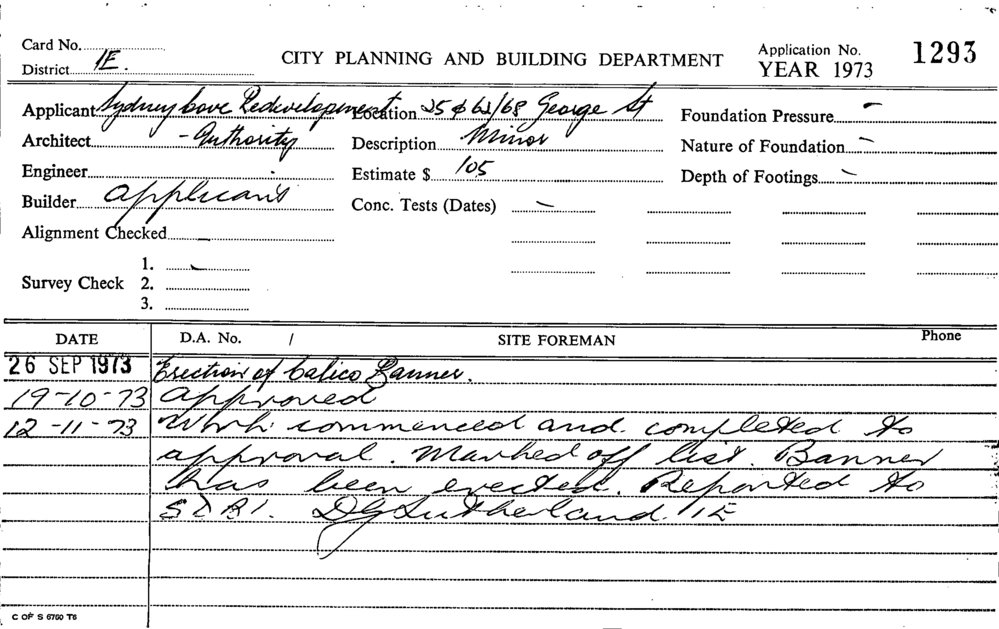 Card No.
District 1E.
CITY PLANNING AND BUILDING DEPARTMENT
Application No. 1293
YEAR 1973
Applicant Sydney Cove Redevelopment
Location 25 & 63/68 George St
Foundation Pressure -
Architect - Authority
Description Minor
Nature of Foundation -
Engineer
Estimate $ 105
Depth of Footings -
Builder applicant
Conc. Tests (Dates) -
Alignment Checked -
Survey Check 1. -
2.
3.
DATE D.A. No. / SITE FOREMAN Phone
26 SEP 1973 Erection of Calico Banner.
19-10-73 Approved
12-11-73 Work commenced and completed to
approval. Marked off list. Banner
has been erected. Reported to
DG Sutherland. 1E
C OF S 6760 T6